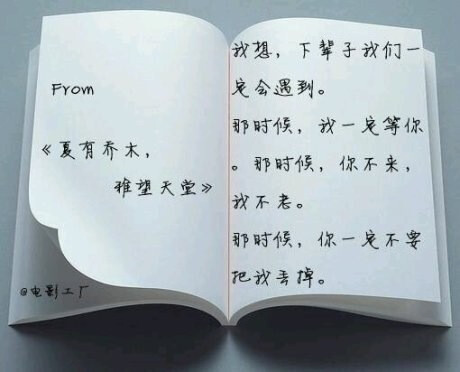 From
《夏有乔木，
雅望天堂》
@电影工厂
我想，下辈子我们一
定会遇到。
那时候，我一定等你
。那时候，你不来，
我不老。
那时候，你一定不要
把我丢掉。